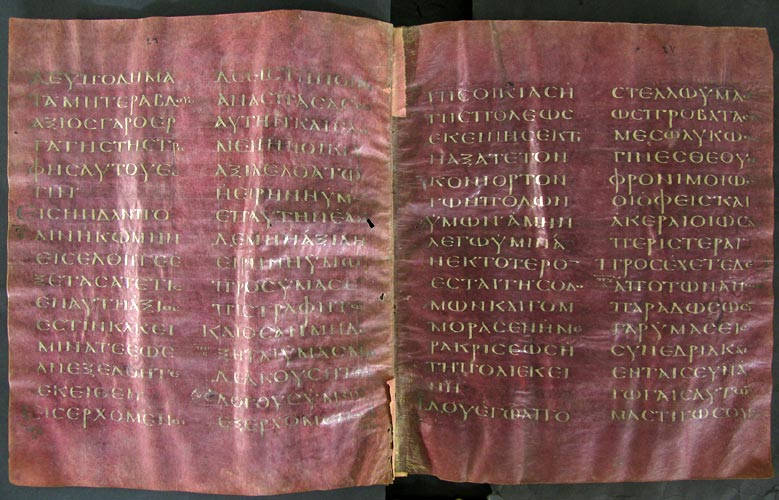 ΔΕΥΠΟΔΗΜΑ
ΤΑΜΗΤΕΡΑΒΔΟΝ
ΑΞΙΟϹΓΑΡΟΕΡ
ΓΑΤΗϹΤΗϹΤΡΟ
ΦΗϹΑΥΤΟΥΕϹ
ΤΙΝ
ΕΙϹΗΝΔΑΝΠΟ
ΛΙΝΗΚΩΜΗΝ
ΕΙϹΕΛΘΗΤΕΕ
ΞΕΤΑϹΑΤΕΤΙϹ
ΕΝΑΥΤΗΑΞΙΟϹ
ΕϹΤΙΝΚΑΚΕΙ
ΜΙΝΑΤΕΕΩϹ
ΑΝΕΞΕΛΘΗΤΕ
ΕΚΕΙΘΕΝ
ΕΙϹΕΡΧΟΜΕΝΟΙ
ΔΕΕΙϹΤΗΝΟΙΚΙ
ΑΝΑϹΠΑϹΑϹΘΕ
ΑΥΤΗΝΚΑΙΕΑΝ
ΜΕΝΗΗΟΙΚΙΑ
ΑΞΙΑΕΛΘΑΤΩ
ΗΕΙΡΗΝΗΥΜΩΝ
ΕΠΑΥΤΗΝΕΑΝ
ΔΕΜΗΗΑΞΙΑΗ
ΕΙΡΗΝΗΥΜΩΝ
ΠΡΟϹΥΜΑϹΕ
ΠΙϹΤΡΑΦΗΤΩ
ΚΑΙΟϹΑΝΜΗΔΕ
ΞΗΤΑΙΥΜΑϹΜΗ
ΔΕΑΚΟΥϹΗΤΟΥϹ
ΛΟΓΟΥϹΥΜΩΝ
ΕΞΕΡΧΟΜΕΝΟΙ
ΤΗϹΟΙΚΙΑϹΗ
ΤΗϹΠΟΛΕΩϹ
ΕΚΕΙΝΗϹΕΚΤΙ
ΝΑΞΑΤΕΤΟΝ
ΚΟΝΙΟΡΤΟΝ
ΤΩΝΠΟΔΩΝ
ΥΜΩΝΑΜΗΝ
ΛΕΓΩΥΜΙΝΑ
ΝΕΚΤΟΤΕΡΟΝ
ΕϹΤΑΙΓΗϹΟΔΟ
ΜΩΝΚΑΙΓΟΜ
ΜΟΡΑϹΕΝΗΜΕ
ΡΑΚΡΙϹΕΩϹΗ
ΤΗΠΟΛΙΕΚΕΙ
ΝΗ
ΙΔΟΥΕΓΩΑΠΟ
ϹΤΕΛΛΩΥΜΑϹ
ΩϹΠΡΟΒΑΤΑ
ΜΕϹΩΛΥΚΩΝ
ΓΙΝΕϹΘΕΟΥΝ
ΦΡΟΝΙΜΟΙΩϹ
ΟΙΟΦΕΙϹΚΑΙ
ΑΚΕΡΑΙΟΙΩϹ
ΠΕΡΙϹΤΕΡΑΙ
ΠΡΟϹΕΧΕΤΕΔΕ
ΑΠΟΤΩΝΑΝΩΝ
ΠΑΡΑΔΩϹΟΥ
ΓΑΡΥΜΑϹΕΙϹ
ϹΥΝΕΔΡΙΑΚΑΙ
ΕΝΤΑΙϹϹΥΝΑ
ΓΩΓΑΙϹΑΥΤΩΝ
ΜΑϹΤΙΓΩϹΟΥϹΙΝ